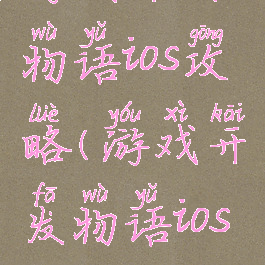 wù yǔ gōng
物语ios攻
lüè yóu xì kāi
略(游戏开
fā wù yǔ
发物语ios